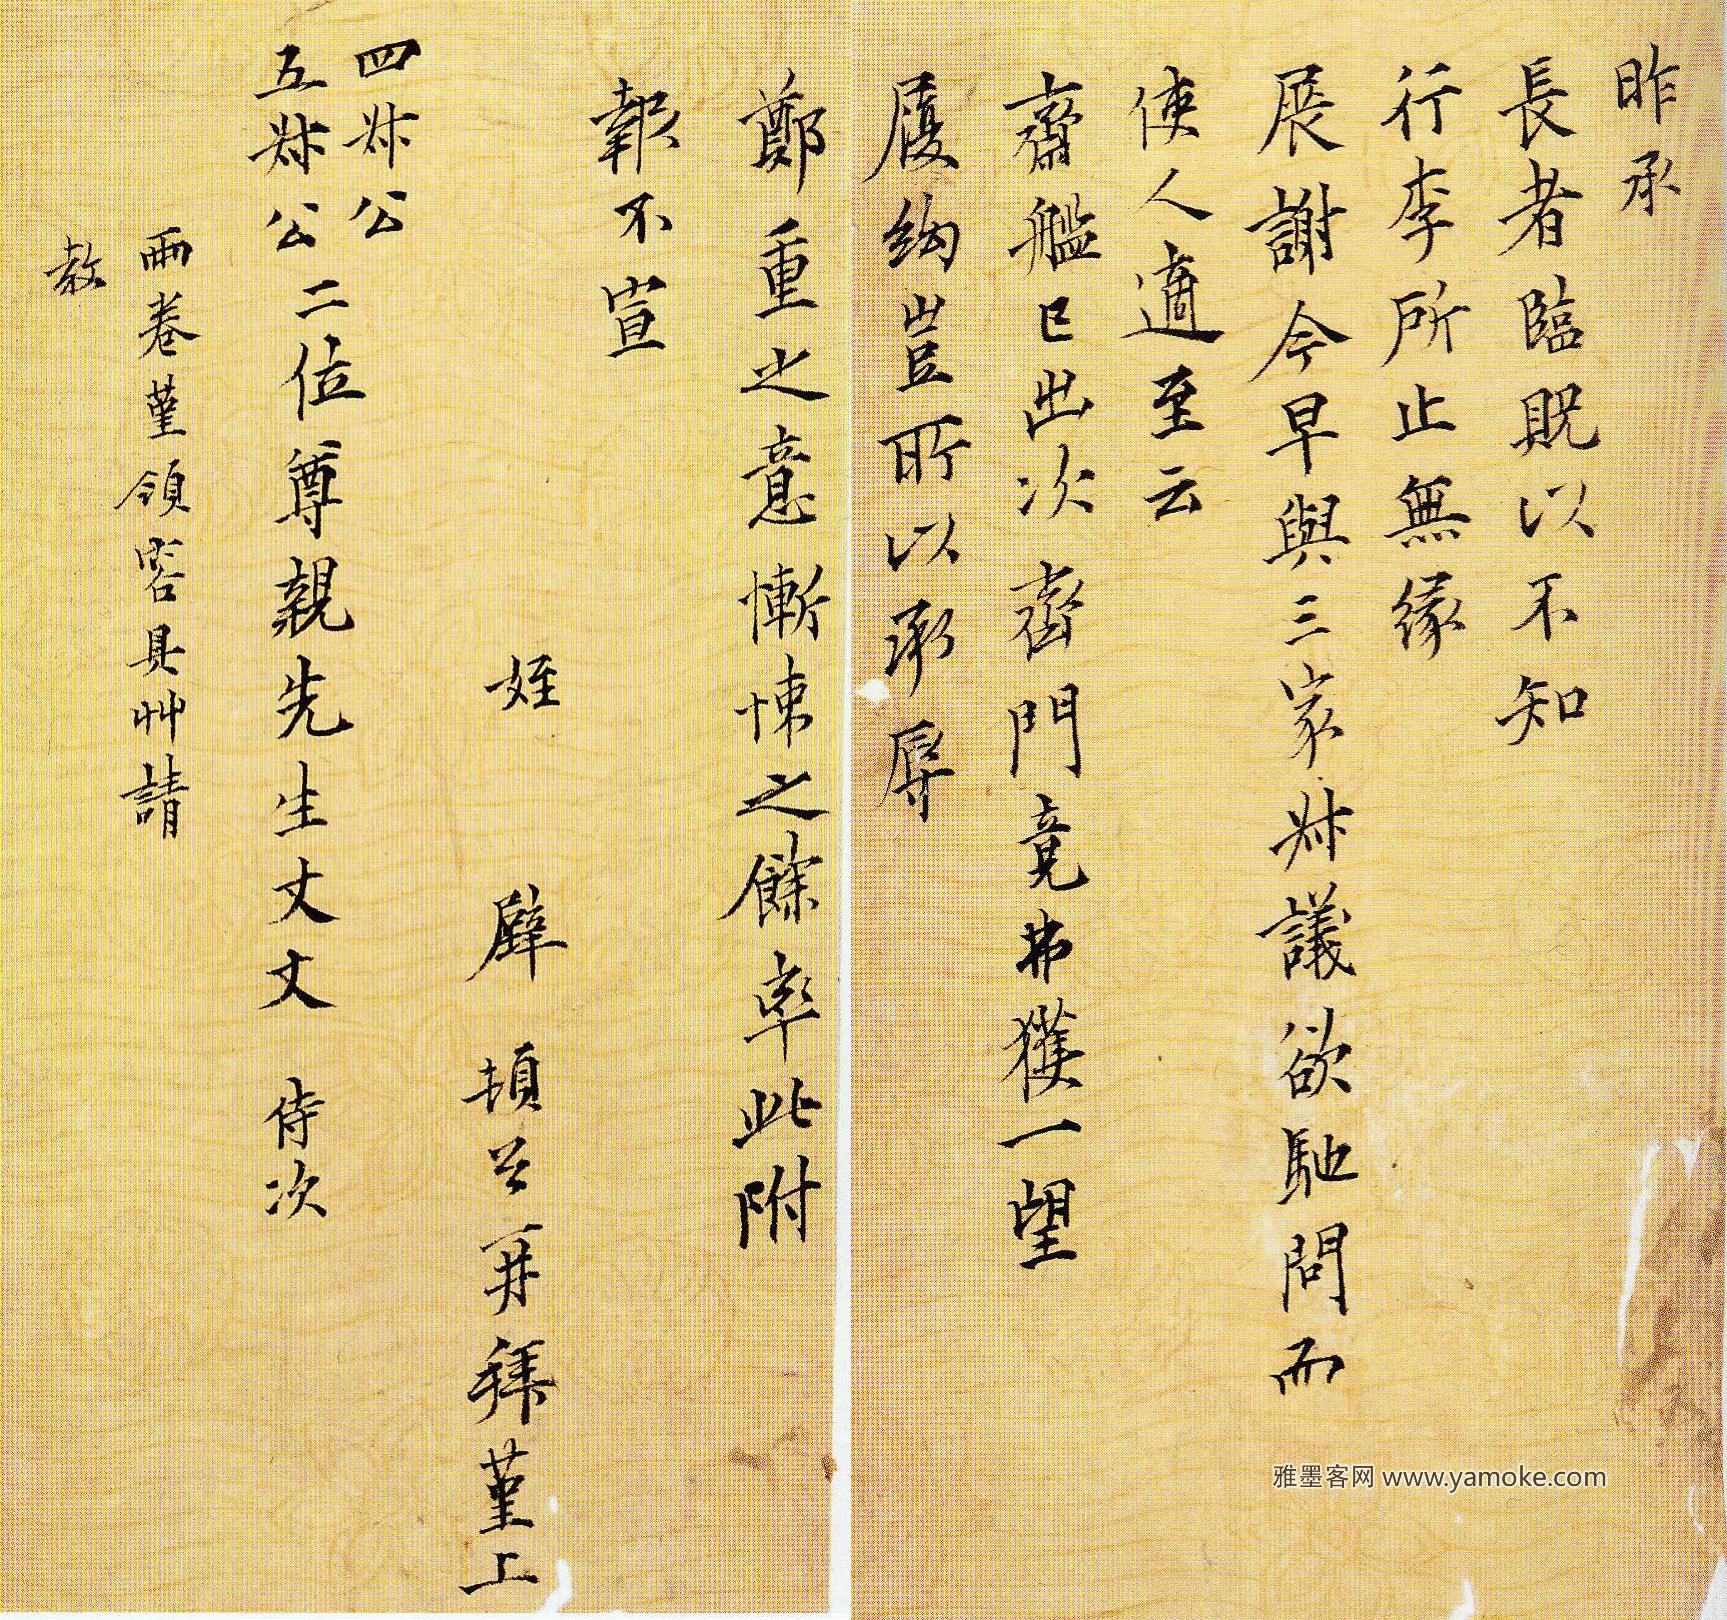 昨承
長者臨貺以不知
行李所止無緣
展謝今早與三家叔議欲馳問而
使人適至云
齋艦已出次齊門竟弗獲一望
履絇豈所以承辱
鄭重之意慚悚之餘率此附
報不宣
姪 壁 頓首再拜堇上
四叔公
五叔公二位尊親先生丈丈 侍次
兩卷堇領容具艸請
教
雅墨客网 www.yamoke.com